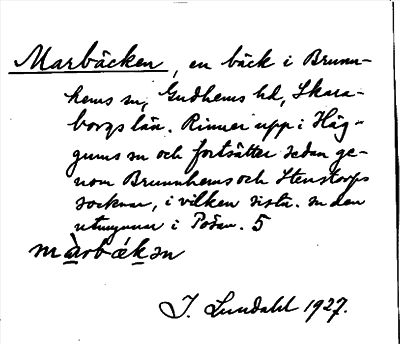 Marbäcken, en bäck i Brunn-
hems sn, Gudhems hd, Skara-
borgs län. Rinner upp i Häg-
gums sn och fortsätter sedan ge-
nom Brunnhems och Stenstorps
socknar, i vilken sista sn den
utmynnar i Pösan. 5
màrbǽkən
I. Lundahl 1927.